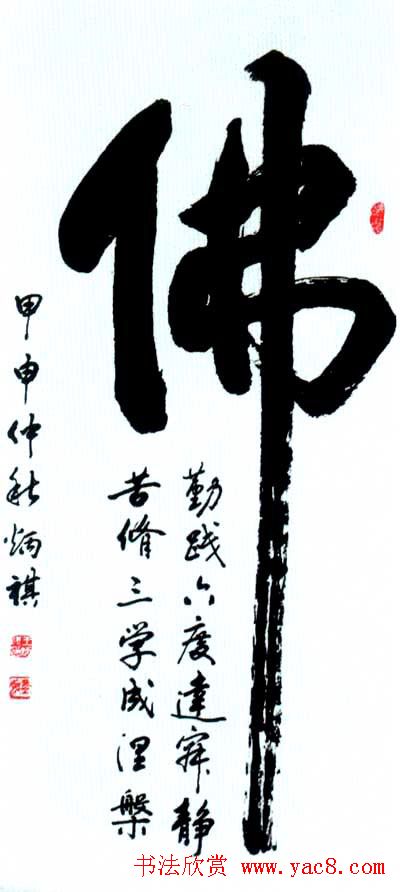 佛
勤践六度達寂静
苦修三学成涅槃
甲申仲秋炳祺
书法欣赏 www.yac8.com